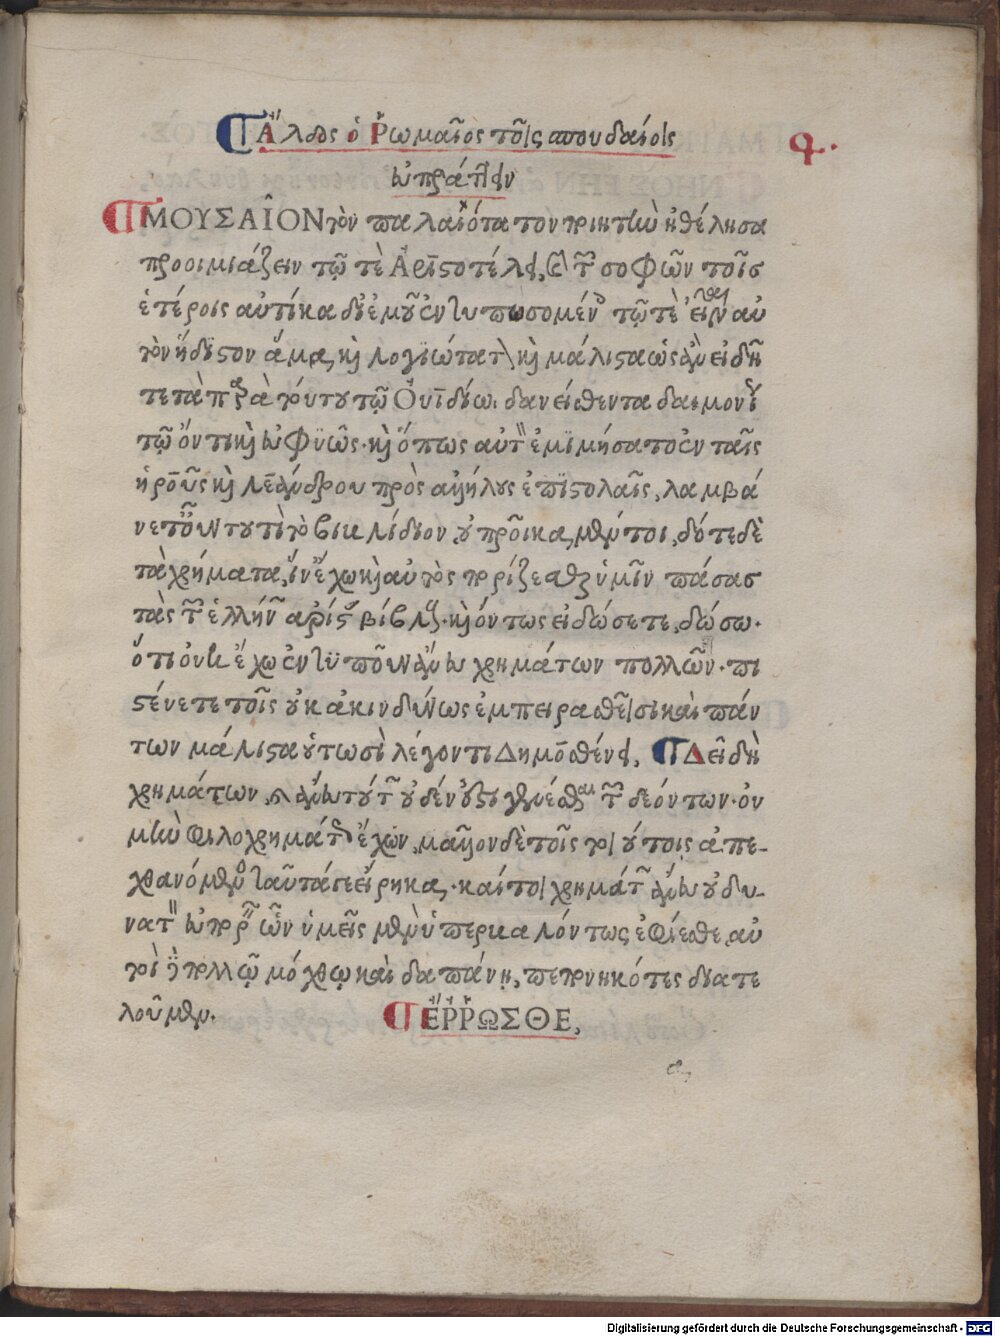 Ἄλδος ὁ Ῥωμαῖος τοῖς σπουδαίοις
εὖ πράττειν
ΜΟΥΣΑΙ͂ΟΝ τὸν παλαιότατον ποιητὴν ἠθέλησα
προοιμιάζειν τῷ τὲ Ἀριστοτέλει, καὶ τῶν σοφῶν τοῖς
ἑτέροις αὐτίκα δι' ἐμοῦ ἐντυπωσομένοις τῷ τὲ εἶναι αὐ
τὸν ἥδιστον ἅμα, καὶ λογιώτατον καὶ μάλιστα ὡς ἂν εἰδῆ
τε τὰ παρὰ τούτου τῷ Ὀυϊδίῳ. δανεισθέντα δαιμονίῳ
τῷ ὄντι καὶ εὐφυῶς. καὶ ὅπως αὐτὸν ἐμιμήσατο ἐν ταῖς
ἡροῦς καὶ λεάνδρου πρὸς ἀλλήλους ἐπιστολαῖς, λαμβά
νετ' οὖν τουτὶ τὸ βιβλίδιον, οὐ προῖκα, μέντοι, δότε δὲ
τὰ χρήματα, ἵν' ἔχω καὶ αὐτὸς πορίζεσθαι ὑμῖν πάσας
τὰς τῶν ἑλλήνων ἀρίστας βίβλους. καὶ ὄντως εἰ δώσετε, δώσω.
ὅτι οὐκ ἔχω ἐντυποῦν ἄνευ χρημάτων πολλῶν. πι
στεύετε τοῖς οὐκ ἀκινδύνως ἐμπειραθεῖσι καὶ πάν
των μάλιστα οὑτωσὶ λέγοντι Δημοσθένει, Δεῖ δὴ
χρημάτων, καὶ ἄνευ τούτων οὐδέν οὐστι γενέσθαι τῶν δεόντων. οὐ
μὴν φιλοχρημάτως ἔχων, μᾶλλον δὲ τοῖς τοιούτοις ἀπε-
χθανόμενος ταῦτά γε εἴρηκα, καίτοι χρημάτων ἄνευ οὐ δυ-
νατὸν εὐπορεῖν ὧν ὑμεῖς μὲν ὑπερκαλόντως ἐφίεσθε, αὐ
τοὶ ἢ πολλῷ μόχθῳ καὶ δαπάνῃ, πεπονηκότες διατε
λοῦμεν. ἜΡΡΩΣΘΕ,
Digitalisierung gefördert durch die Deutsche Forschungsgemeinschaft - DFG